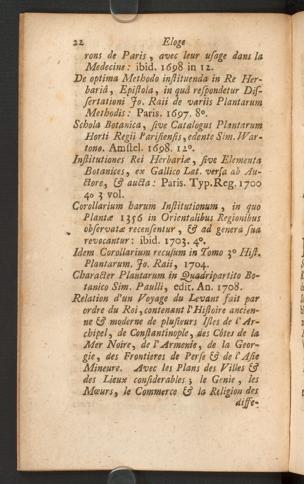 22 Eloge
rons de Paris, avec leur uſage dans la
Medecine: ibid. 1698 in 12.
De optima Methodo inſtituenda in Re Her-
bariâ, Epiſtola, in quâ reſpondetur Diſ-
ſertationi Jo. Raii de variis Plantarum
Methodis: Paris. 1697. 8o.
Schola Botanica, ſive Catalogus Plantarum
Horti Regii Pariſienſis, edente Sim. War-
tono. Amſtel. 1698. 12o.
Inſtitutiones Rei Herbariæ, ſive Elementa
Botanices, ex Gallico Lat. verſa ab Au-
ctore, & aucta: Paris. Typ. Reg. 1700
4o 3 vol.
Corollarium harum Inſtitutionum, in quo
Plantæ 1356 in Orientalibus Regionibus
obſervatæ recenſentur, & ad genera ſua
revocantur: ibid. 1703. 4o.
Idem Corollarium recuſum in Tomo 3o Hiſt.
Plantarum. Jo. Raii, 1704.
Character Plantarum in Quadripartito Bo-
tanico Sim. Paulli, edit. An. 1708.
Relation d'un Voyage du Levant fait par
ordre du Roi, contenant l'Hiſtoire ancien-
ne & moderne de pluſieurs Iſles de l'Ar-
chipel, de Conſtantinople, des Côtes de la
Mer Noire, de l'Armenie, de la Geor-
gie, des Frontieres de Perſe & de l'Aſie
Mineure. Avec les Plans des Villes &
des Lieux conſiderables; le Genie, les
Mœurs, le Commerce & la Religion des
diffe-